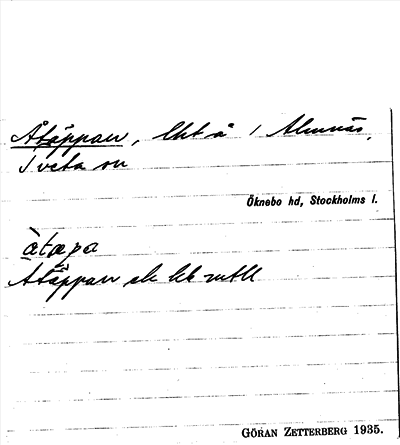 Åtäppan, lht å 1 Almnäs,
Tveta sn
Öknebo hd, Stockholms l.
àtæpa
Åtäppan ek lek mtll
GÖRAN ZETTERBERG 1935.